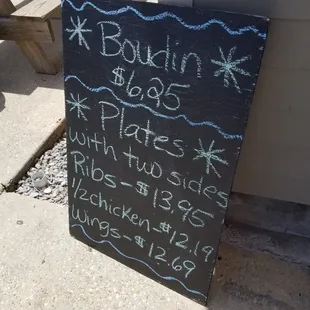 Boudin
$6.25
Plates
with two sides
Ribs-$13.95
1/2 chicken-$12.19
Wings-$12.69